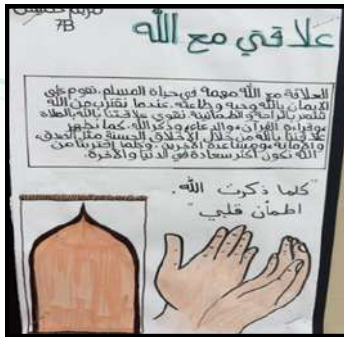 7B
علاقتي مع الله
العلاقة مع الله مهمة في حياة المسلم. تقوم على
الإيمان بالله وحبه وطاعته. عندما نقترب من الله
نشعر بالراحة والطمأنينة. نقوي علاقتنا بالله بالصلاة
وقراءة القرآن، والدعاء، وذكر الله. كما تظهر
علاقتنا بالله من خلال الأخلاق الحسنة مثل الصدق،
والأمانة، ومساعدة الآخرين. وكلما اقتربنا من
الله نكون أكثر سعادة في الدنيا والآخرة.
"كلما ذكرت الله.
اطمأن قلبي"